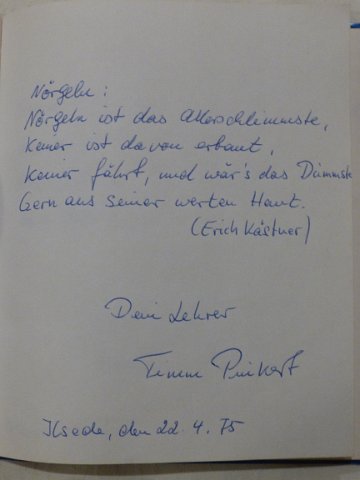 Nörgeln:
Nörgeln ist das Allerschlimmste,
Keiner ist davon erbaut,
Keiner fährt, und wär's das Dümmste
Gern aus seiner werten Haut.
(Erich Kästner)
Dein Lehrer
Timm Pinkert
Ilsede, den 22. 4. 75